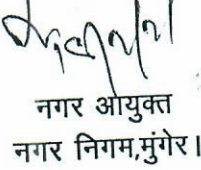 नगर आयुक्त
नगर निगम,मुंगेर।